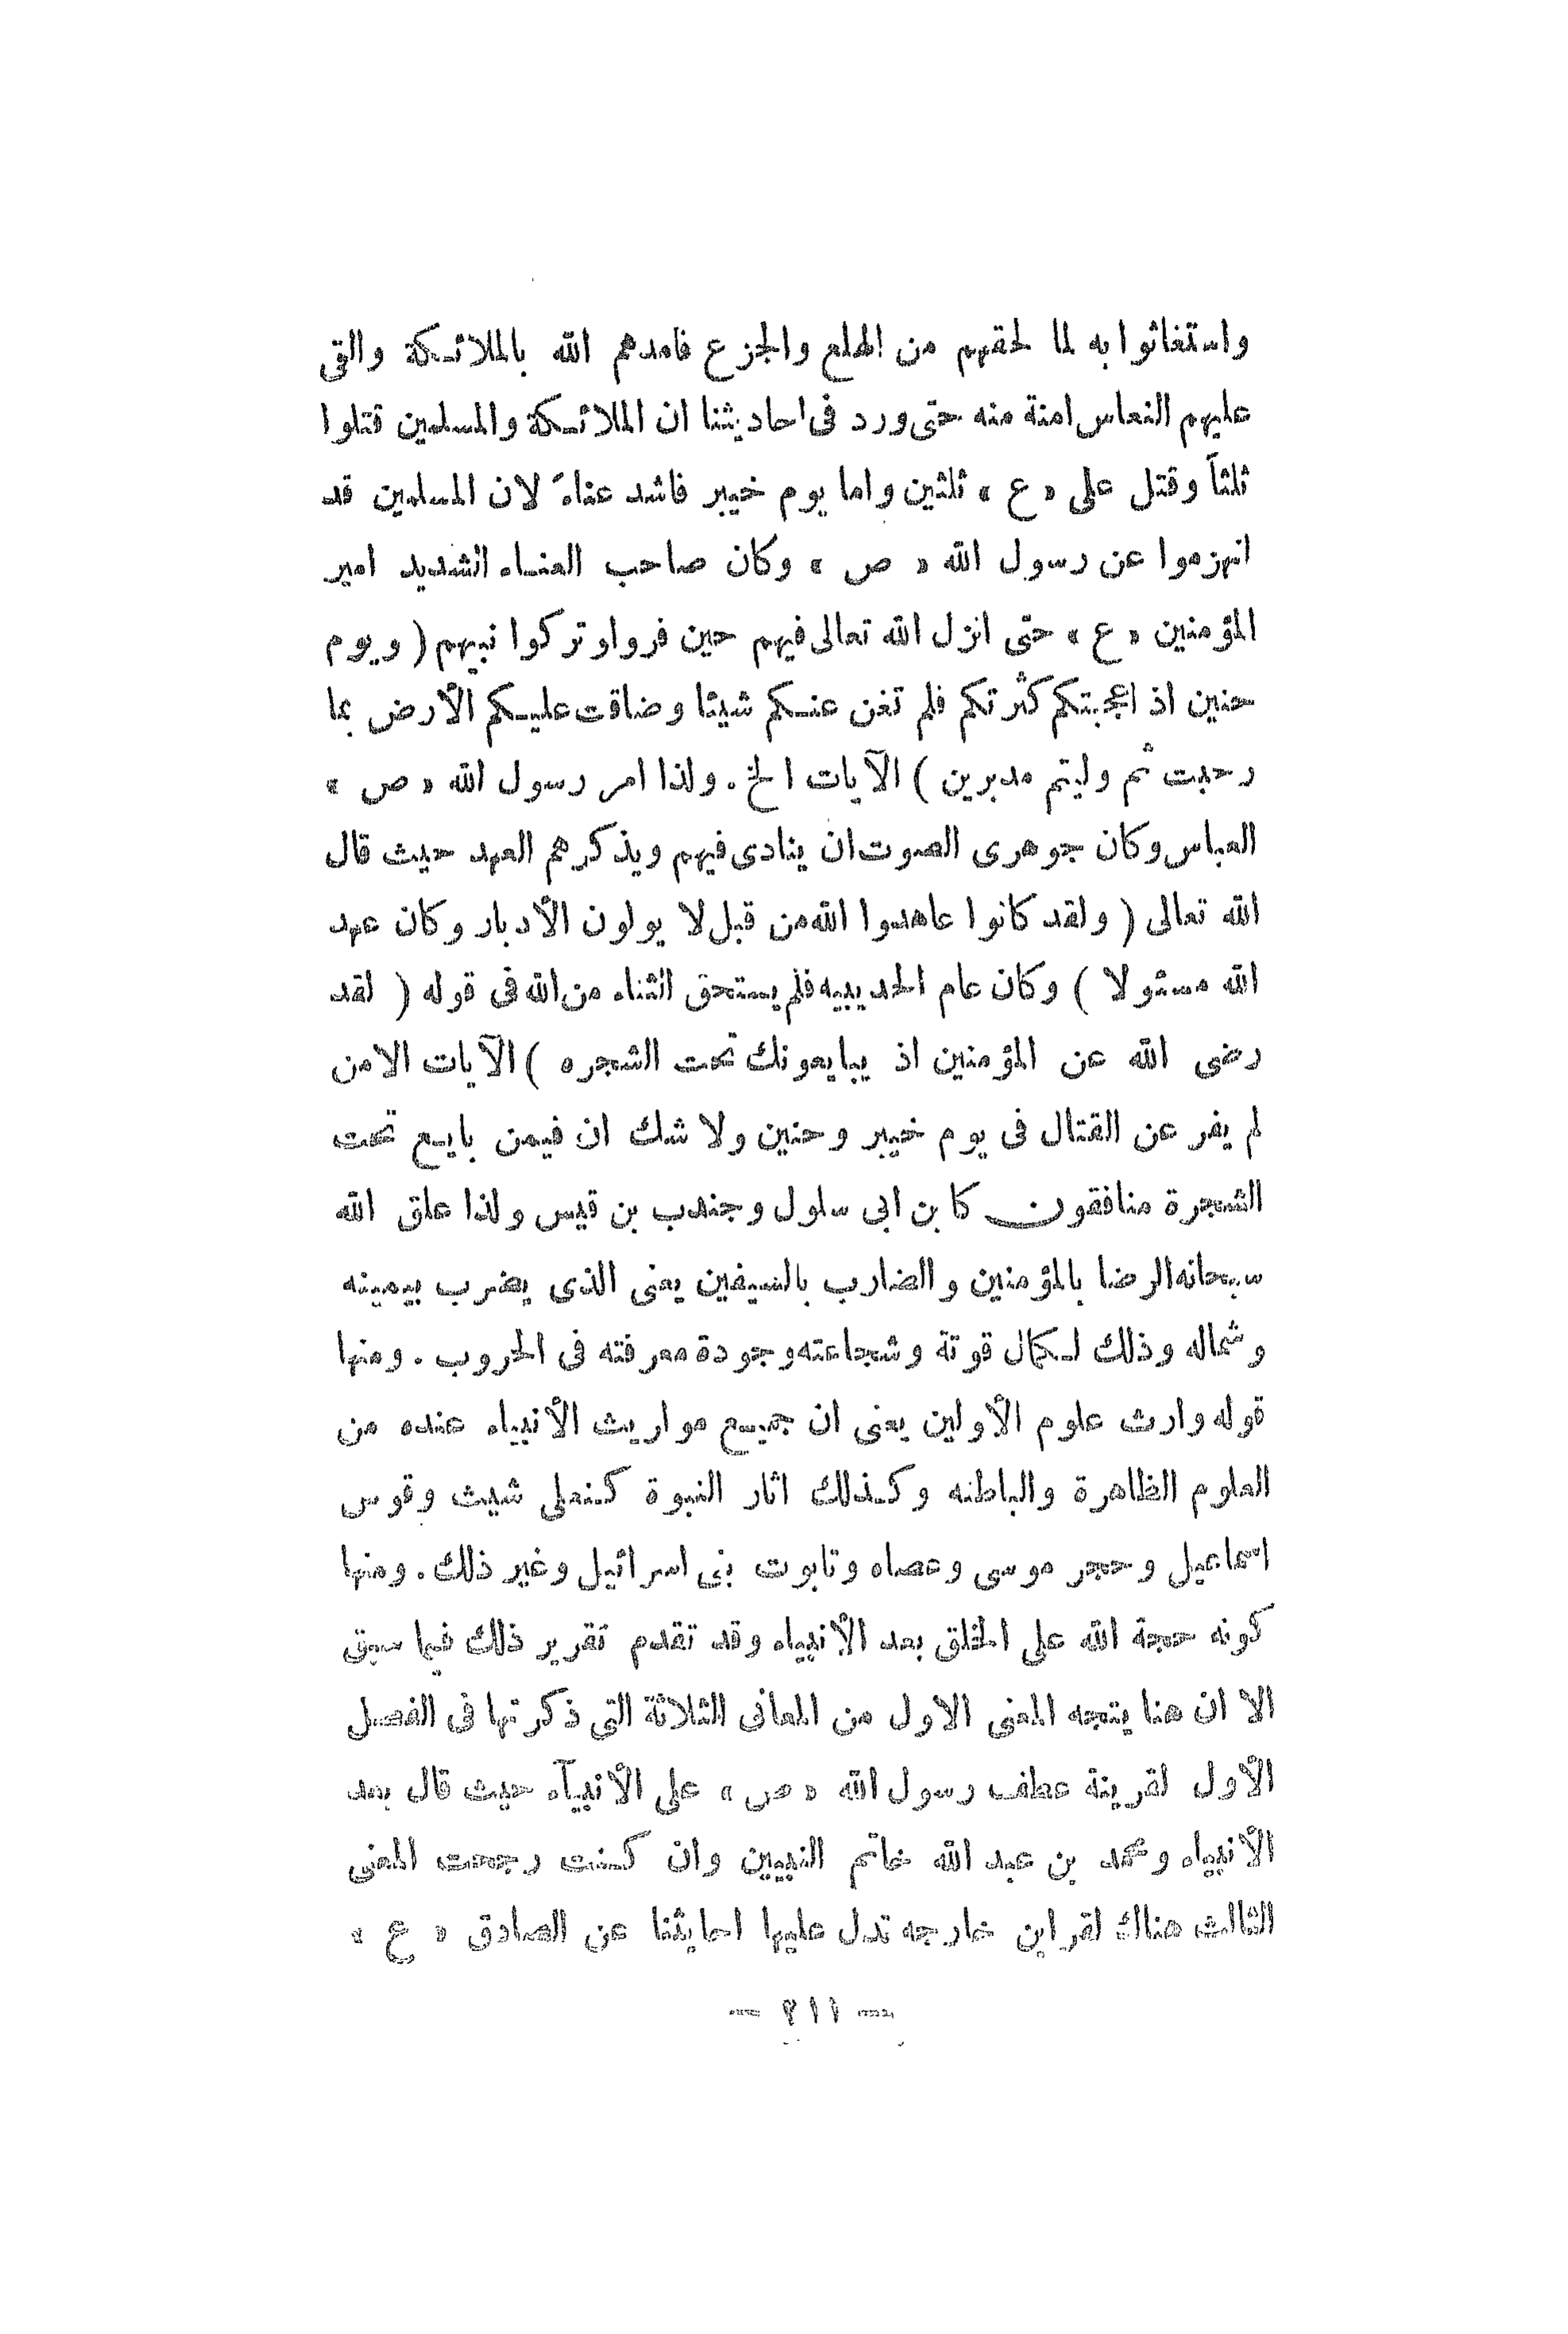 واستغاثوا به لما لحقهم من الهلع والجزع فامدهم الله بالملائكة والقى
عليهم النعاس امنة منه حتى ورد فى احاديثنا ان الملائكة والمسلمين قتلوا
ثلثاً وقتل على « ع » ثلثين واما يوم خيبر فاشد عناءً لان المسلمين قد
انهزموا عن رسول الله « ص » وكان صاحب العناء الشديد امير
المؤمنين « ع » حتى انزل الله تعالى فيهم حين فروا وتركوا نبيهم ( ويوم
حنين اذ اعجبتكم كثرتكم فلم تغن عنكم شيئا وضاقت عليكم الأرض بما
رحبت ثم وليتم مدبرين ) الآيات الخ . ولذا امر رسول الله « ص »
العباس وكان جوهرى الصوت ان ينادى فيهم ويذكرهم العهد حيث قال
الله تعالى ( ولقد كانوا عاهدوا الله من قبل لا يولون الأدبار وكان عهد
الله مسئولا ) وكان عام الحديبيه فلم يستحق الثناء من الله فى قوله ( لقد
رضى الله عن المؤمنين اذ يبايعونك تحت الشجره ) الآيات الامن
لم يفر عن القتال فى يوم خيبر وحنين ولا شك ان فيمن بايع تحت
الشجرة منافقون كابن ابى سلول وجندب بن قيس ولذا علق الله
سبحانه الرضا بالمؤمنين والضارب بالسيفين يعنى الذى يضرب بيمينه
وشماله وذلك لكمال قوتة وشجاعته وجودة معرفته فى الحروب . ومنها
قوله وارث علوم الأولين يعنى ان جميع مواريث الأنبياء عنده من
العلوم الظاهرة والباطنه وكذلك اثار النبوة كنعلى شيث وقوس
اسماعيل وحجر موسى وعصاه وتابوت بنى اسرائيل وغير ذلك . ومنها
كونه حجة الله على الخلق بعد الأنبياء وقد تقدم تقرير ذلك فيما سبق
الا ان هنا يتجه المعنى الاول من المعانى الثلاثة التى ذكرتها فى الفصل
الأول لقرينة عطف رسول الله « ص » على الأنبيآء حيث قال بعد
الأنبياء ومحمد بن عبد الله خاتم النبيين وان كنت رجحت المعنى
الثالث هناك لقراين خارجه تدل عليها احايثنا عن الصادق « ع »
— ٢١١ —